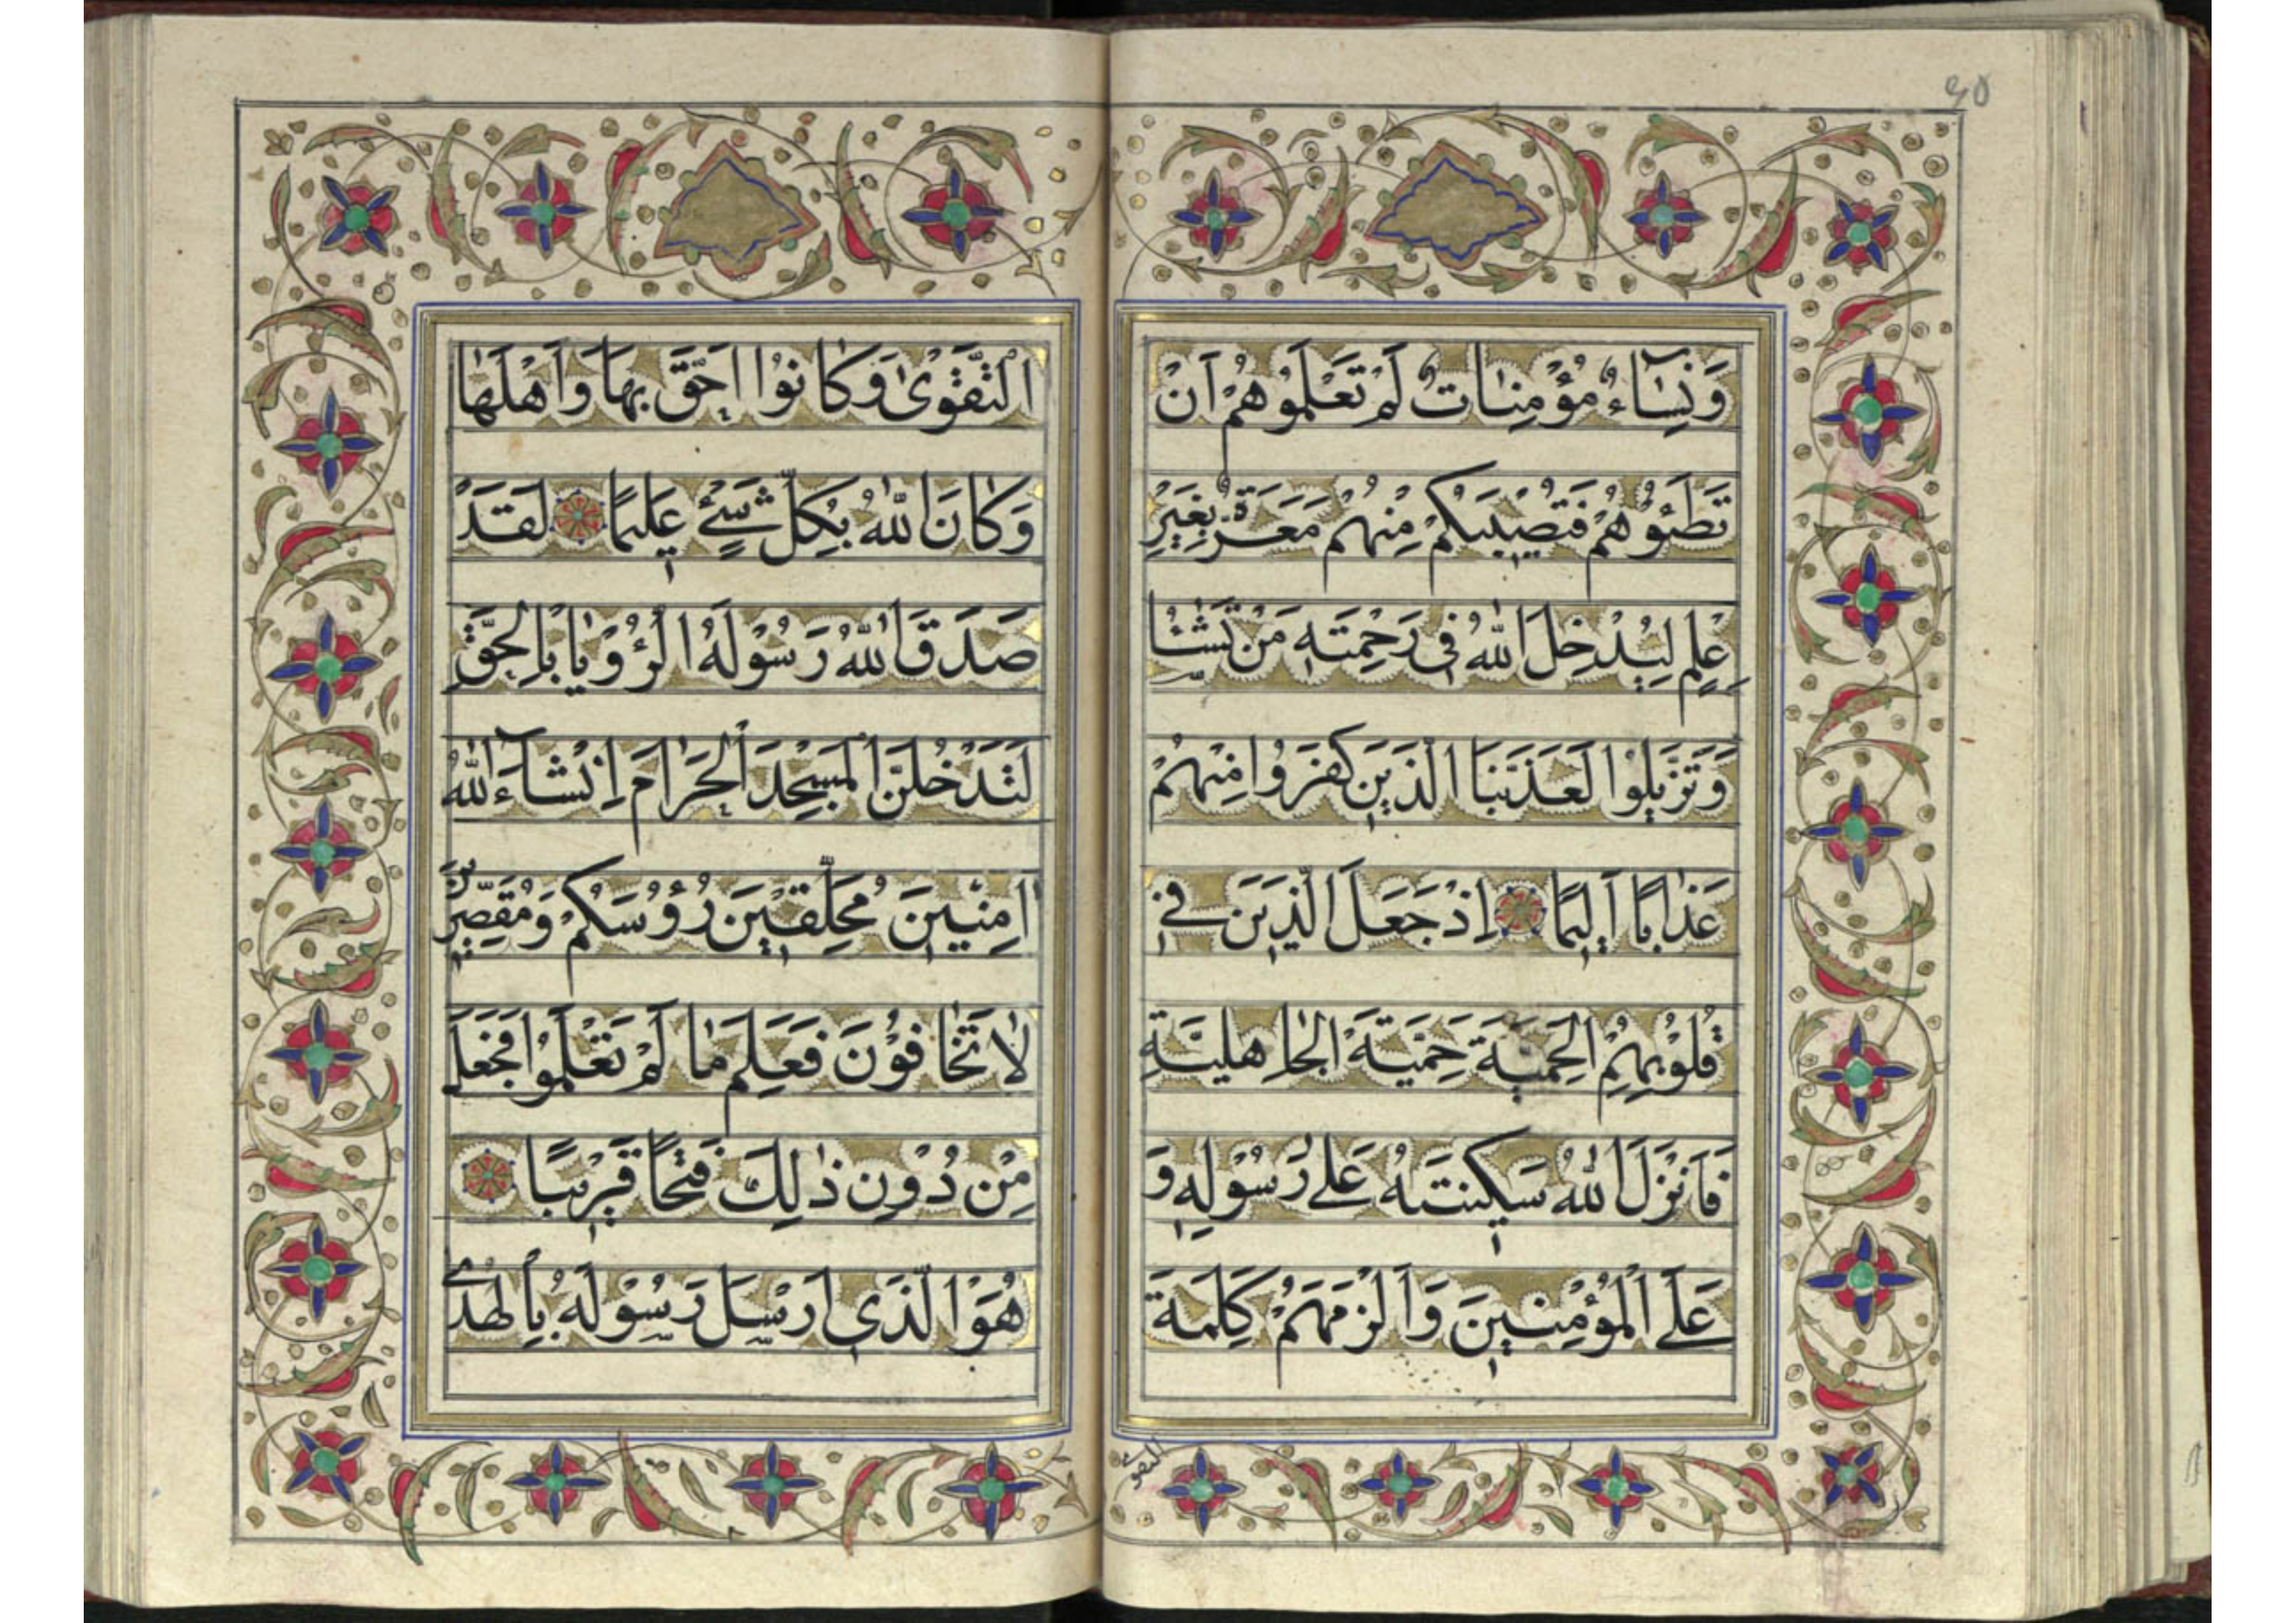 ٩٥
وَنِسَآءٌ مُؤْمِنَاتٌ لَمْ تَعْلَمُوهُمْ اَنْ
تَطَئُوهُمْ فَتُصِيبَكُمْ مِنْهُمْ مَعَرَّةٌ بِغَيْرِ
عِلْمٍ لِيُدْخِلَ اللّٰهُ فِى رَحْمَتِهِ مَنْ يَشَآءُ
لَوْ تَزَيَّلُوا لَعَذَّبْنَا الَّذِينَ كَفَرُوا مِنْهُمْ
عَذَابًا اَلِيمًا اِذْ جَعَلَ الَّذِينَ فِى
قُلُوبِهِمُ الْحَمِيَّةَ حَمِيَّةَ الْجَاهِلِيَّةِ
فَاَنْزَلَ اللّٰهُ سَكِينَتَهُ عَلٰى رَسُوْلِهِ وَ
عَلَى الْمُؤْمِنِينَ وَاَلْزَمَهُمْ كَلِمَةَ
التقوى
التَّقْوٰى وَكَانُوْا اَحَقَّ بِهَا وَاَهْلَهَا
وَكَانَ اللّٰهُ بِكُلِّ شَيْءٍ عَلِيمًا لَقَدْ
صَدَقَ اللّٰهُ رَسُوْلَهُ الرُّؤْيَا بِالْحَقِّ
لَتَدْخُلُنَّ الْمَسْجِدَ الْحَرَامَ اِنْشَآءَ اللّٰهُ
اٰمِنِينَ مُحَلِّقِينَ رُؤُسَكُمْ وَمُقَصِّرِينَ
لَا تَخَافُوْنَ فَعَلِمَ مَا لَمْ تَعْلَمُوا فَجَعَلَ
مِنْ دُوْنِ ذٰلِكَ فَتْحًا قَرِيبًا
هُوَ الَّذِي اَرْسَلَ رَسُوْلَهُ بِالْهُدٰى